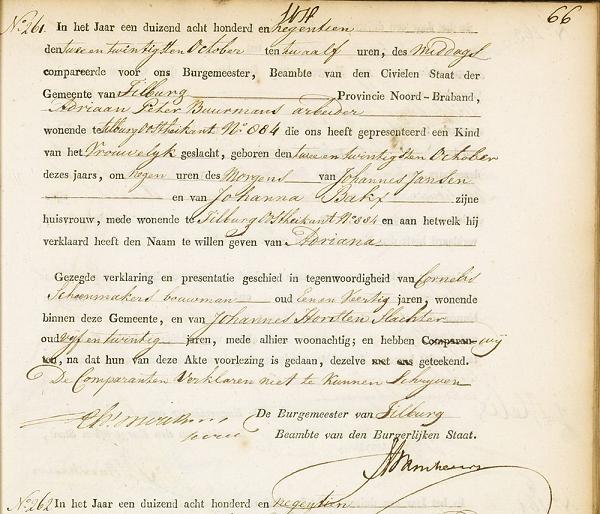 66
No. 261. In het Jaar een duizend acht honderd en negentien
den twee en twintigsten October ten twaalf uren, des middags
compareerde voor ons Burgemeester, Beambte van den Civielen Staat der
Gemeente van Tilburg Provincie Noord-Braband,
Adriaan Peter Buurmans arbeider
wonende te Tilburg Oostheikant No. 884 die ons heeft gepresenteerd een Kind
van het Vrouwelyk geslacht, geboren den twee en twintigsten October
dezes jaars, om negen uren des Morgens van Johannes Jansen
en van Johanna Bakx zijne
huisvrouw, mede wonende te Tilburg Oostheikant No. 884 en aan hetwelk hij
verklaard heeft den Naam te willen geven van Adriana
Gezegde verklaring en presentatie geschied in tegenwoordigheid van Cornelis
Schoenmakers bouwman oud een en Veertig jaren, wonende
binnen deze Gemeente, en van Johannes Horsten Slachter
oud vyf en twintig jaren, mede alhier woonachtig; en hebben Comparan- wij
ten, na dat hun van deze Akte voorlezing is gedaan, dezelve met ons geteekend.
De Comparanten Verklaren niet te Kunnen Schryven
De Burgemeester van Tilburg
Beambte van den Burgerlijken Staat.
No. 262 In het Jaar een duizend acht honderd en negentien